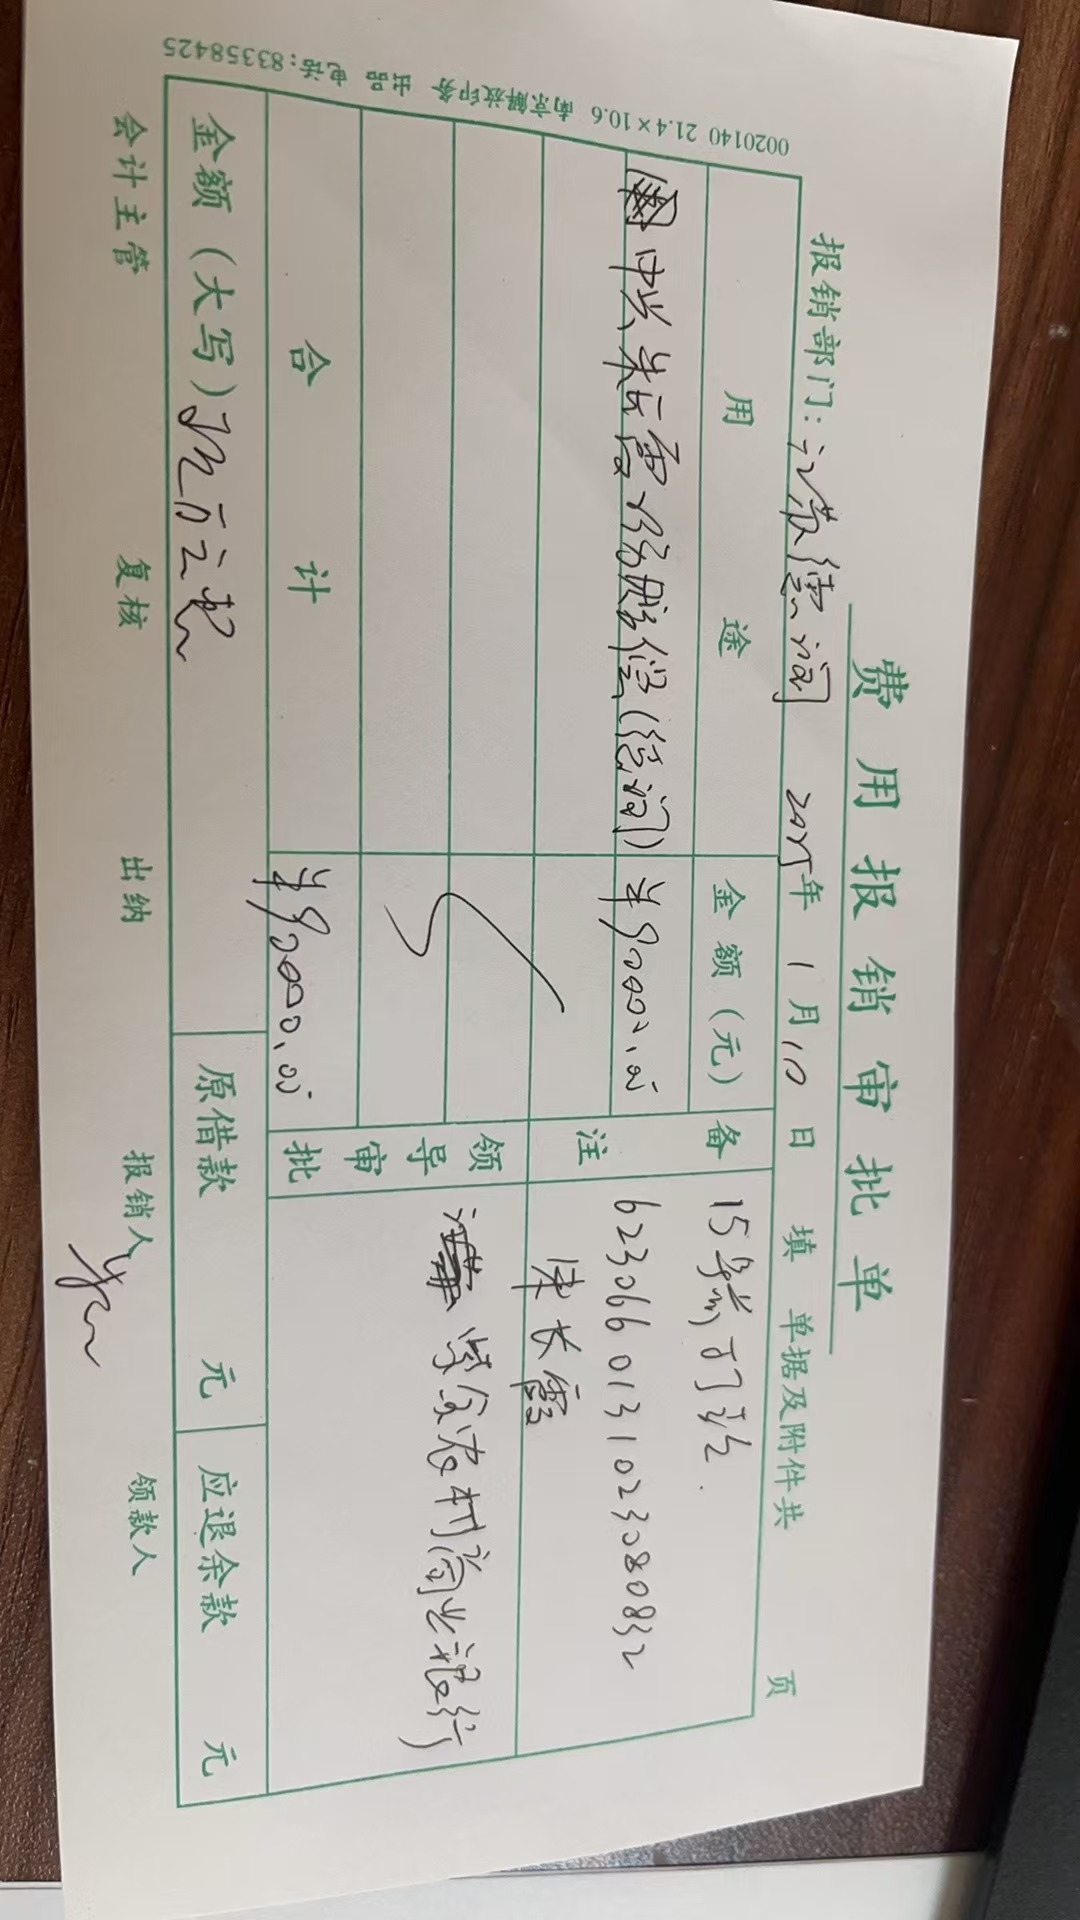 费用报销审批单
报销部门: 江苏德润 2025年 1月10日填 单据及附件共 页
用途 金额(元) 备注 15号前可让.
中兴 朱长霞 (德润) ¥90000.00 6230660131023080832
朱长霞
领导审批 紫金农村商业银行
合计 ¥90000.00
金额(大写) 玖万元整 原借款 元 应退余款 元
会计主管 复核 出纳 报销人 领款人
0020140 21.4×10.6 南京解放印务 出品 电话:83358425